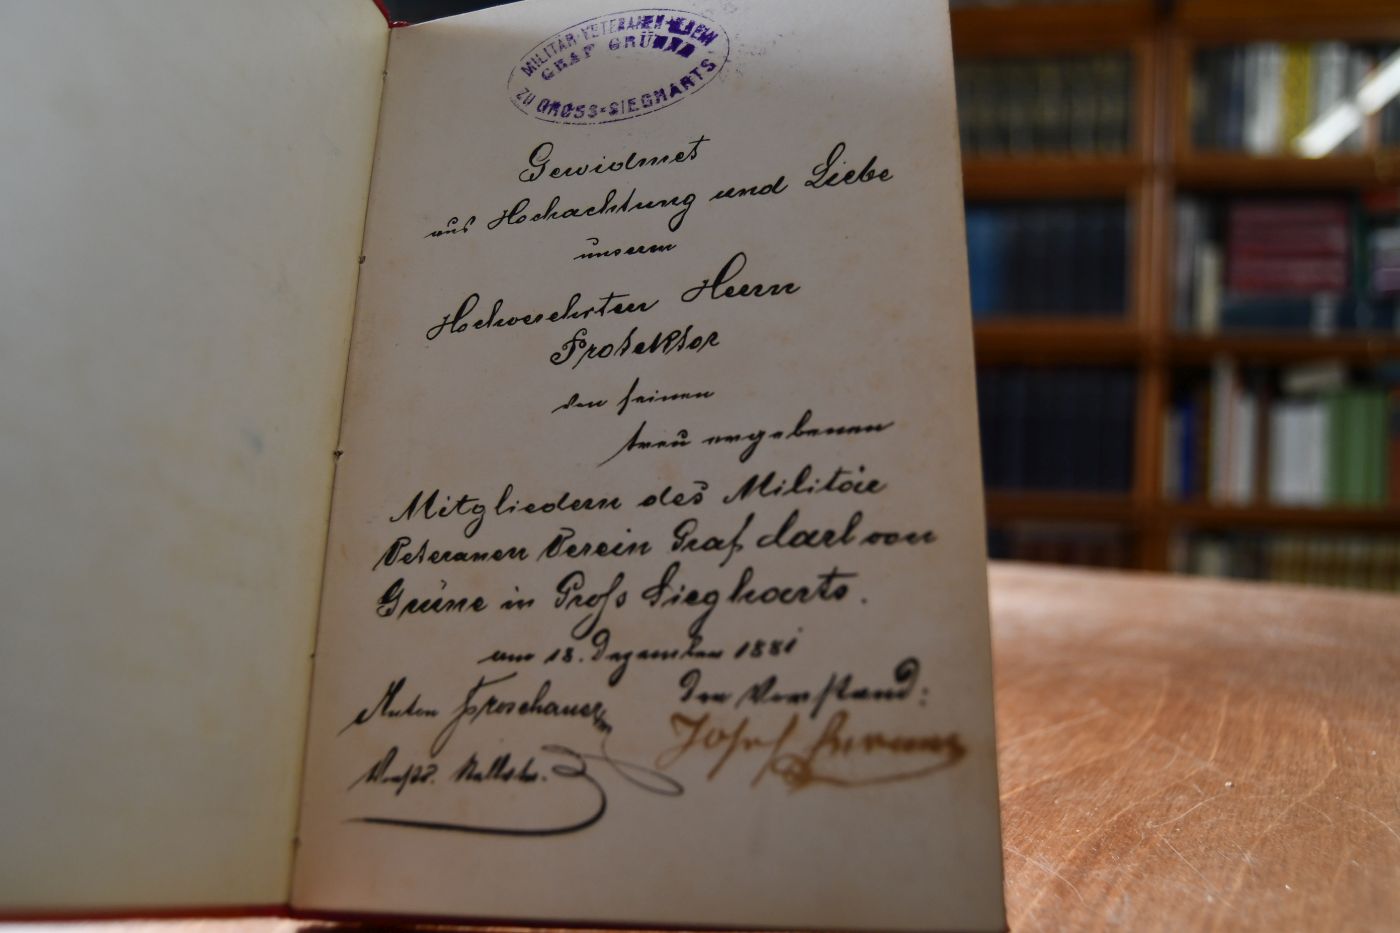 MILITÄR-VETERANEN-VEREIN
GRAF GRÜNNE
ZU GROSS-SIEGHARTS
Gewidmet
aus Hochachtung und Liebe
unserm
Hochverehrten Herrn
Protektor
von seinen
treu ergebenen
Mitgliedern des Militär
Veteranen Verein Graf Carl von
Grüne in Groß Siegharts.
am 18. Dezember 1881
Anton Froschauer
Der Vorstand:
Vorst. Stellv.
Josef